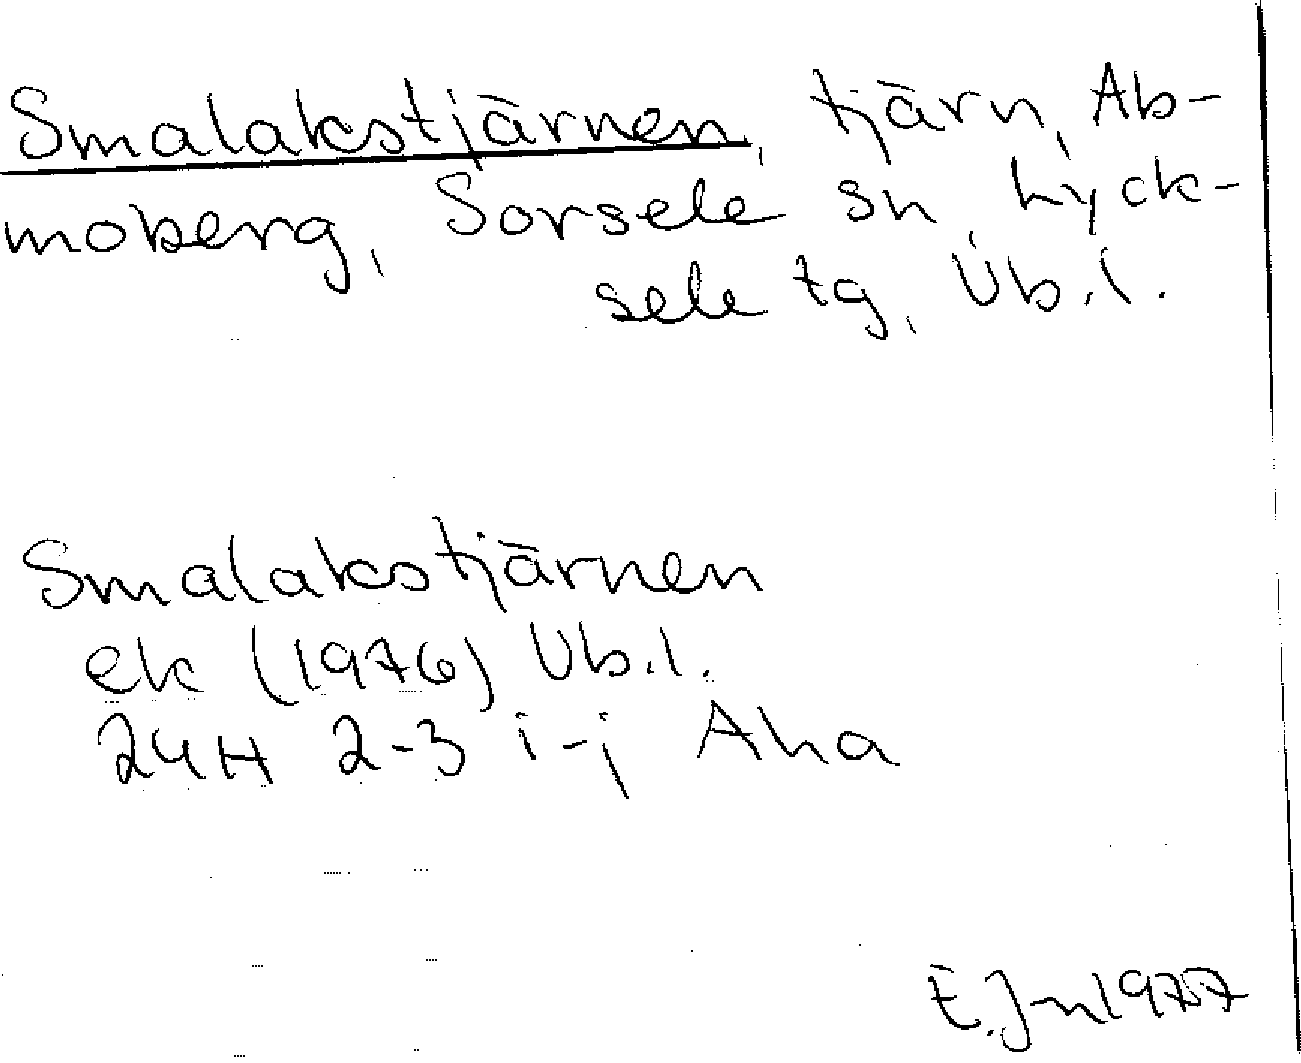 Smalakstjärnen, tjärn, Ab-
moberg, Sorsele sn, Lyck-
sele tg, Vb.l.
Smalakstjärnen
ek (1976) Vb.l.
24H 2-3 i-j Aha
E.Jn 1977